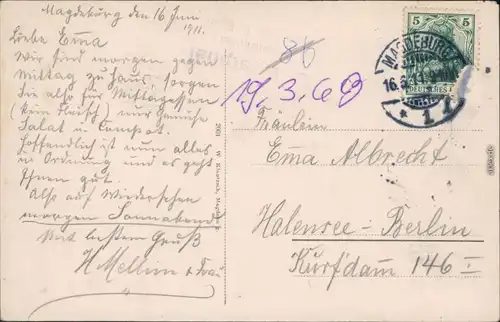 Magdeburg den 16 Juni
1911.
Liebe Emma
Wir sind morgen gegen
Mittag zu Haus, sorgen
Sie also für Mittagessen
(kein Fleisch) nur Gemüse
Salat u Compot.
Hoffendlich ist nun alles
in Ordnung und es geht
Ihnen gut.
Also auf Wiedersehen
morgen Sonnabend
Mit bestem Gruß
H Mellin u Frau
86
19.3.69
5 5
MAGDEBURG
16.6.11
DEUTSCHES
* 1
Fräulein
Emma Albrecht
Halensee-Berlin
Kurf'dam 146 I